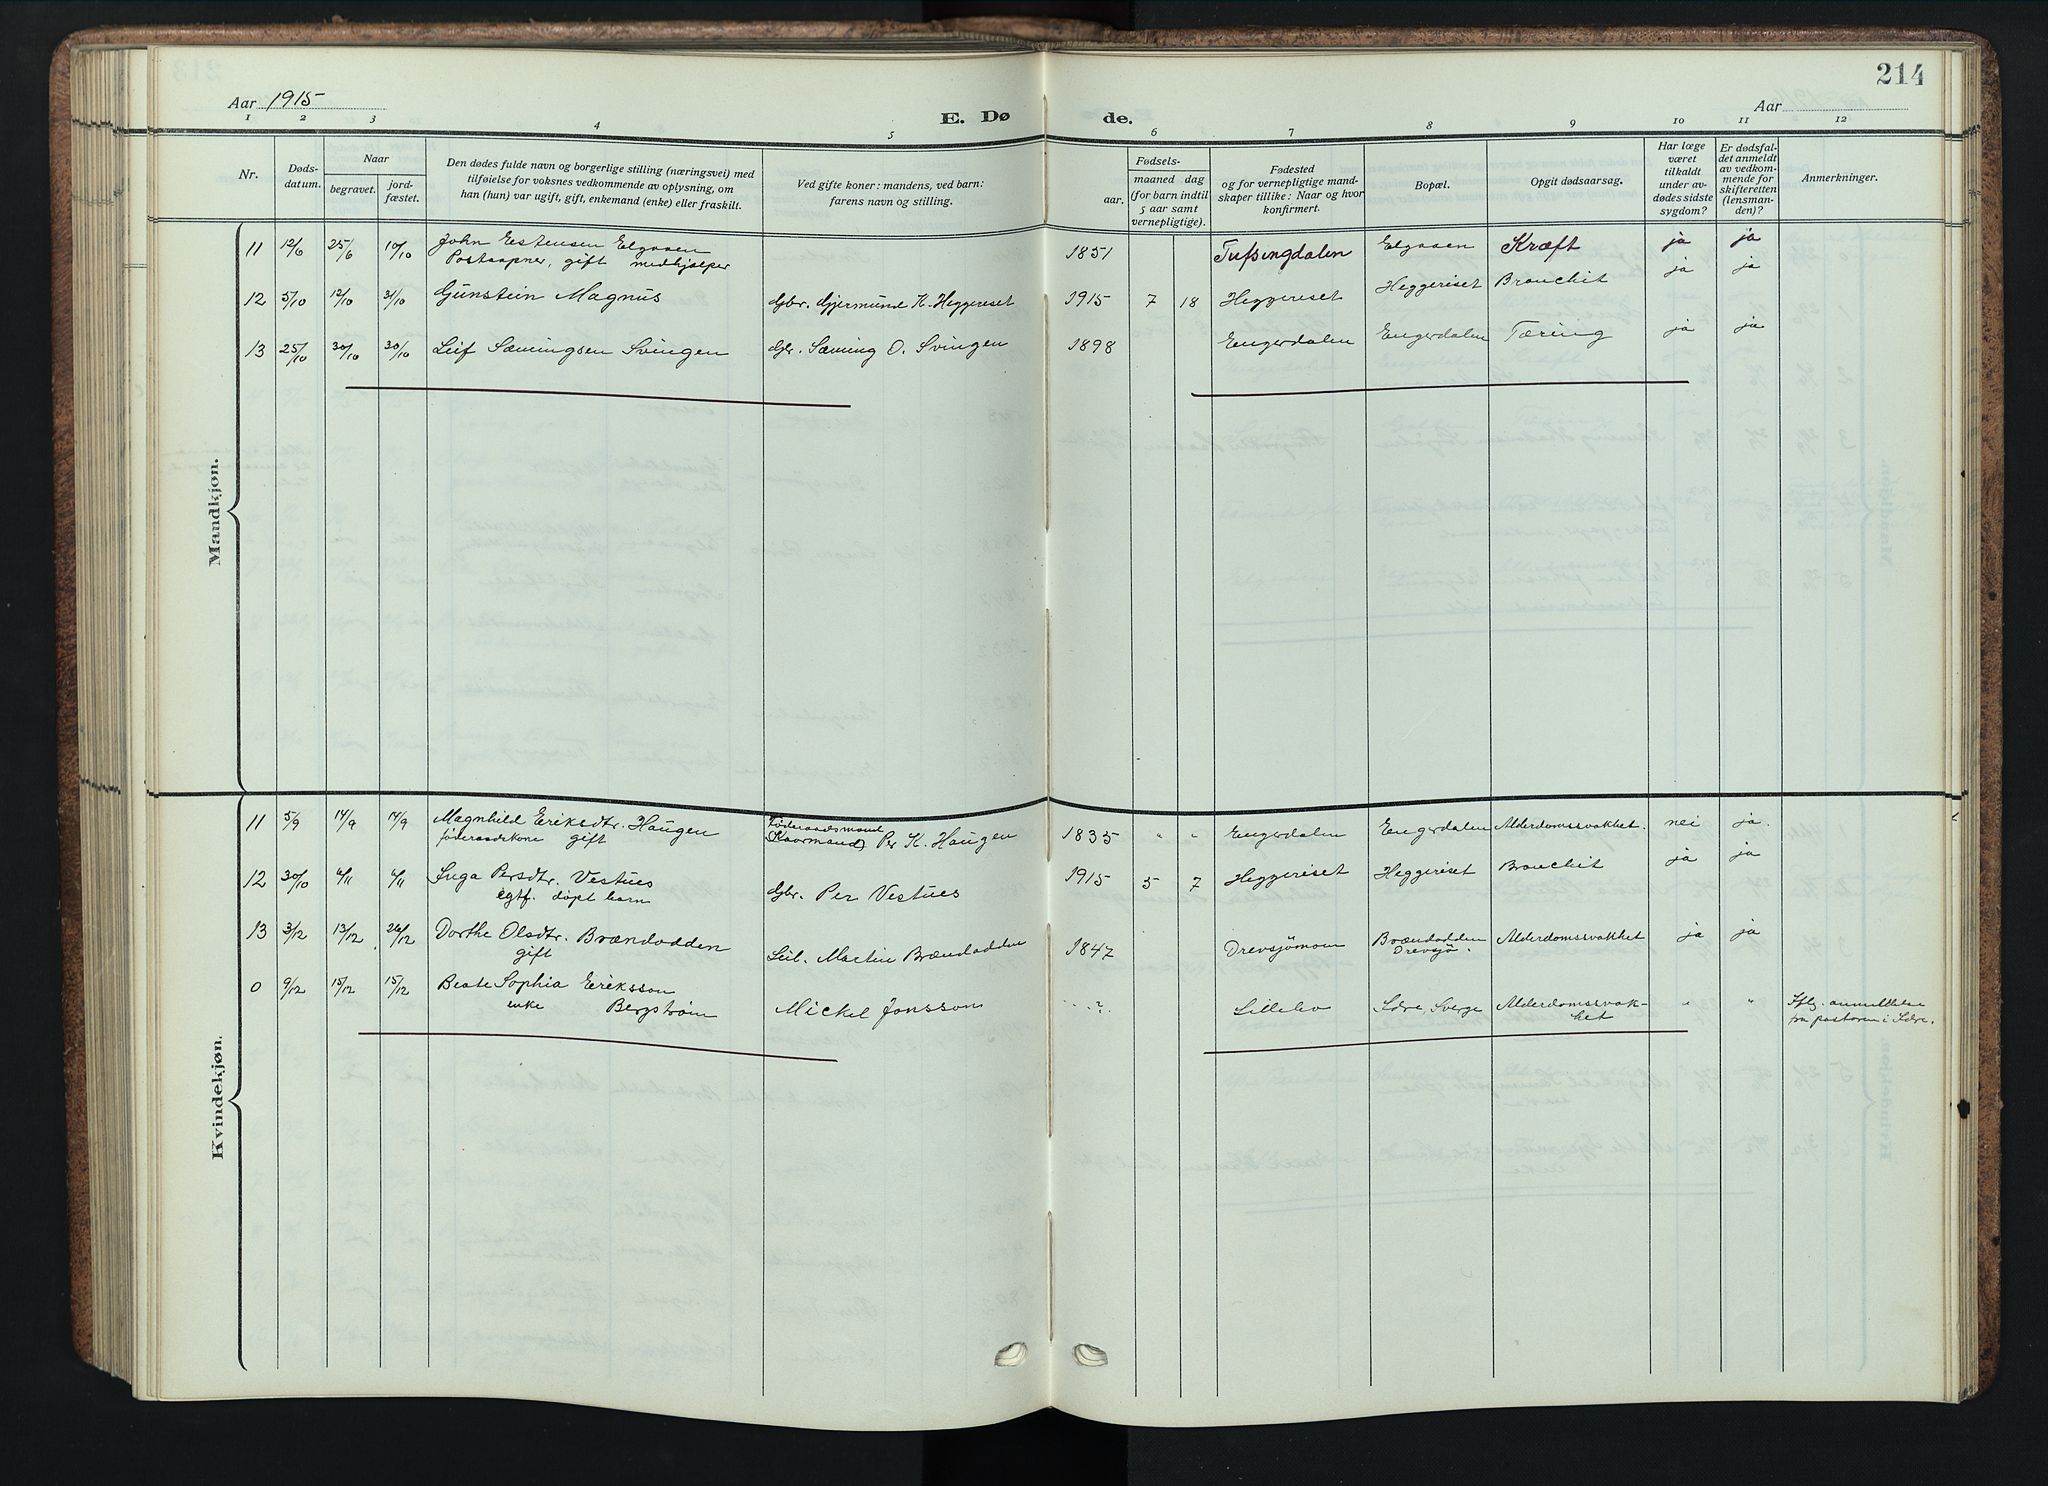 214
Aar 1915
E. Dø
de.
Aar
1 2 3 4 5 6 7 8 9 10 11 12
Nr.
Døds-
datum.
Naar
begravet.
jord-
fæstet.
Den dødes fulde navn og borgerlige stilling (næringsvei) med
tilføielse for voksnes vedkommende av oplysning, om
han (hun) var ugift, gift, enkemand (enke) eller fraskilt.
Ved gifte koner: mandens, ved barn:
farens navn og stilling.
Fødsels-
aar.
maaned dag
(for barn indtil
5 aar samt
vernepligtige).
Fødested
og for vernepligtige mand-
skaper tillike: Naar og hvor
konfirmert.
Bopæl.
Opgit dødsaarsag.
Har læge
været
tilkaldt
under av-
dødes sidste
sygdom?
Er dødsfal-
det anmeldt
av vedkom-
mende for
skifteretten
(lensman-
den)?
Anmerkninger.
Maandkjøn.
11 12/6 25/6 10/10 John Estensen Elgaaen 1851 Tufsingdalen Elgaaen Kræft ja ja
Postaapner, gift medhjælper
12 5/10 12/10 31/10 Gunstein Magnus Gbr. Gjermund K. Heggeriset 1915 7 18 Heggeriset Heggeriset Bronchit ja ja
13 25/10 30/10 30/10 Leif Sæmingsen Svingen Gbr. Sæming O. Svingen 1898 Engerdalen Engerdalen Tæring ja ja
Kvindekjøn.
11 5/9 14/9 14/9 Magnhild Eriksdtr. Haugen Føderaadsmand 1835 " " Engerdalen Engerdalen Alderdomssvakhet. nei ja.
føderaadskone gift (Kaarmand) Per K. Haugen
12 30/10 6/11 6/11 Inga Persdtr. Vestues Gbr. Per Vestues 1915 5 7 Heggeriset Heggeriset Bronchit ja ja
egtf. døpt barn
13 3/12 13/12 26/12 Dorthe Olsdtr. Brændodden Leil. Martin Brændodden 1847 Drevsjømoen Brændodden Alderdomssvakhet ja ja
gift Drevsjø.
0 9/12 15/12 15/12 Beate Sophia Eriksson Mickel Jonsson ..?. Lillebo Idre, Sverge Alderdomssvak- " " Iflg. anmeldelse
enke Bergstrøm het fra pastoren i Idre.